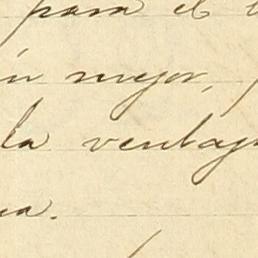 para el
mejor,
la ventaj